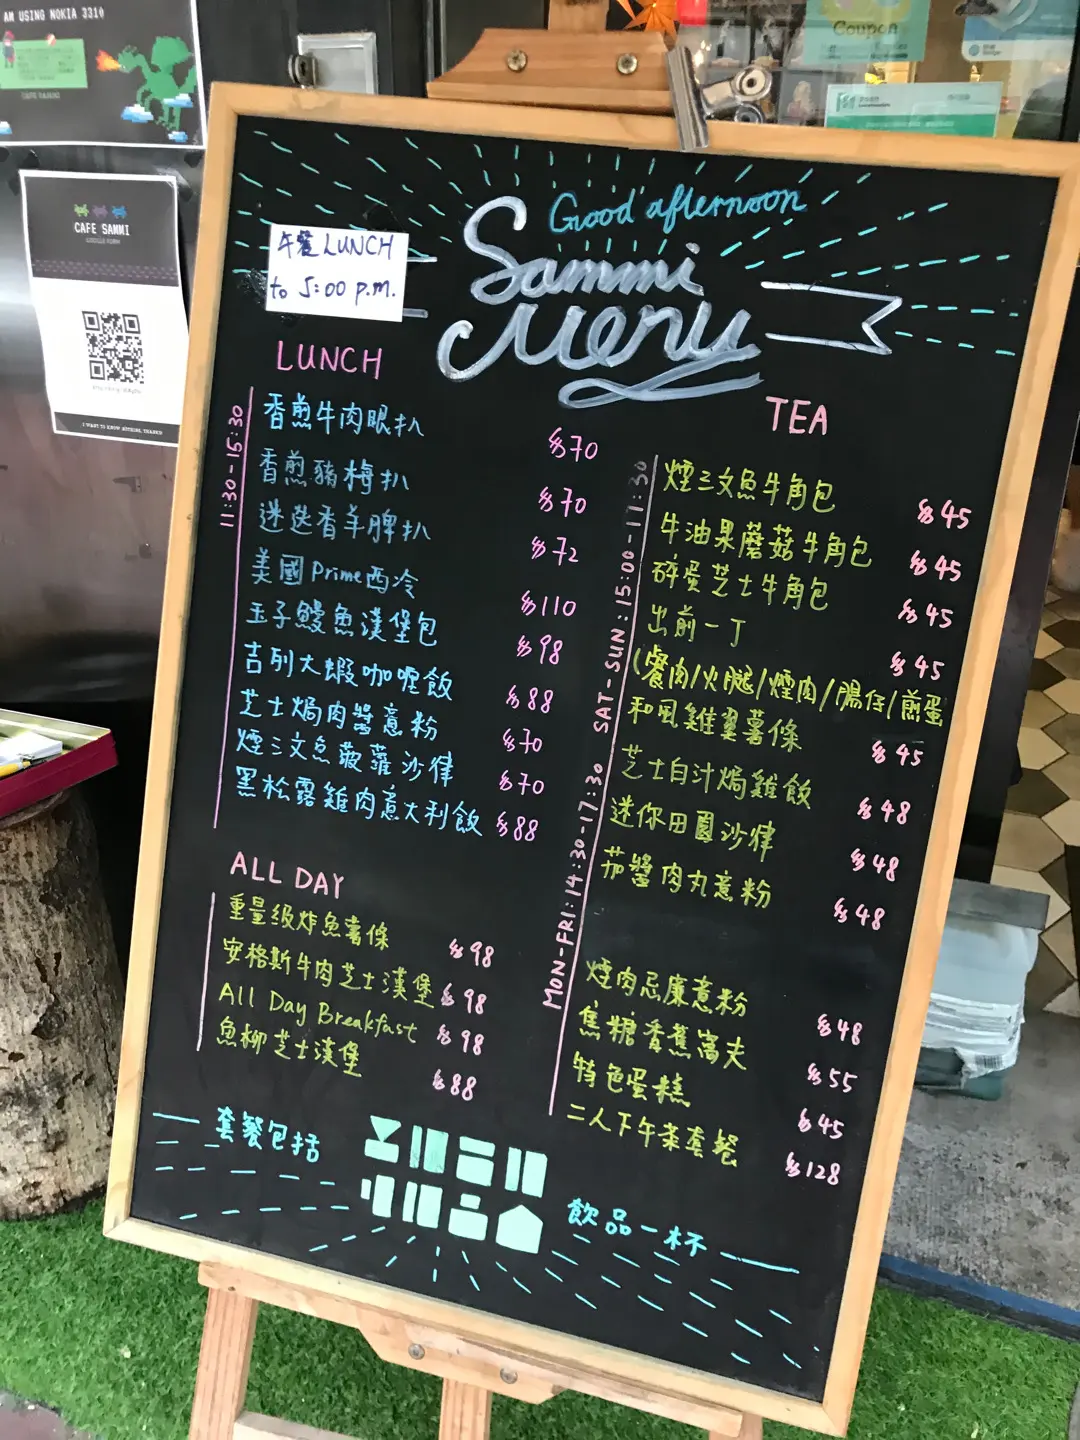 AM USING NOKIA 3310
CAFE SAMMI
CAFE SAMMI
GOOGLE FORM
I WANT TO KNOW NOTHING, THANKS
Coupon
Good afternoon
Sammi
Menu
午餐 LUNCH
to 5:00 p.m.
LUNCH
11:30-15:30
香煎牛肉眼扒 $70
香煎豬梅扒 $70
迷迭香羊脾扒 $72
美國Prime西冷 $110
玉子鰻魚漢堡包 $98
吉列大蝦咖喱飯 $88
芝士焗肉醬意粉 $70
煙三文魚菠蘿沙律 $70
黑松露雞肉意大利飯 $88
ALL DAY
重量级炸魚薯條 $98
安格斯牛肉芝士漢堡 $98
All Day Breakfast $98
魚柳芝士漢堡 $88
TEA
MON-FRI:14:30-17:30 SAT-SUN:15:00-17:30
煙三文魚牛角包 $45
牛油果蘑菇牛角包 $45
碎蛋芝士牛角包 $45
出前一丁 $45
(餐肉/火腿/煙肉/腸仔/煎蛋
和風雞翼薯條 $45
芝士白汁焗雞飯 $48
迷你田園沙律 $48
茄醬肉丸意粉 $48
煙肉忌廉意粉 $48
焦糖香蕉窩夫 $55
特色蛋糕 $45
二人下午茶套餐 $128
套餐包括
飲品一杯